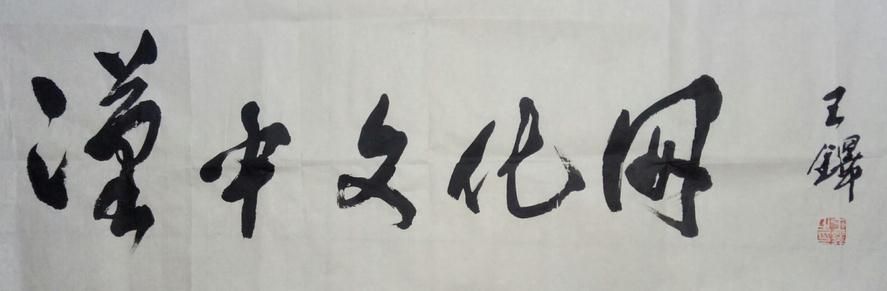 漢中文化网
王鐸